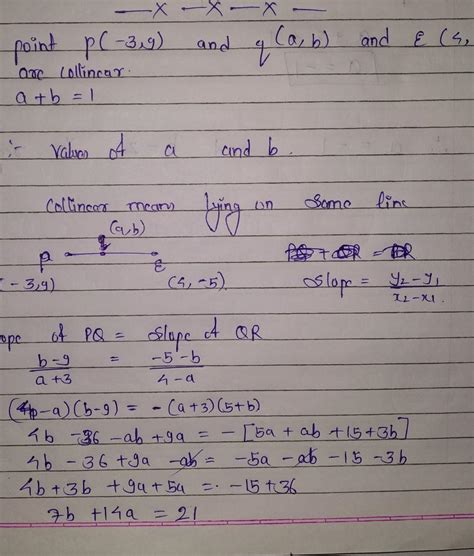 —x —x —x —
point p(-3,9) and q(a,b) and ε (4,
are collinear.
a + b = 1
:- values of a and b.
Collinear means lying on same line
(a,b)
P ε
(-3,9) (4,-5)
Slope = y2 - y1 / x2 - x1
ope of PQ = slope of QR
b-9 / a+3 = -5-b / 4-a
(4-a)(b-9) = -(a+3)(5+b)
4b -36 -ab +9a = -[5a + ab +15+3b]
4b - 36 +9a -ab = -5a -ab -15 -3b
4b +3b +9a+5a = -15+36
7b +14a = 21